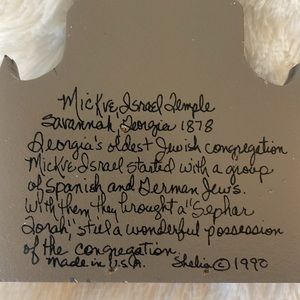 Mickve Israel Temple
Savannah, Georgia 1878
Georgia's oldest Jewish congregation
Mickve Israel started with a group
of Spanish and German Jews.
With them they brought a "Sephar
Torah," still a wonderful possession
of the congregation.
Made in U.S.A. Shelia © 1990